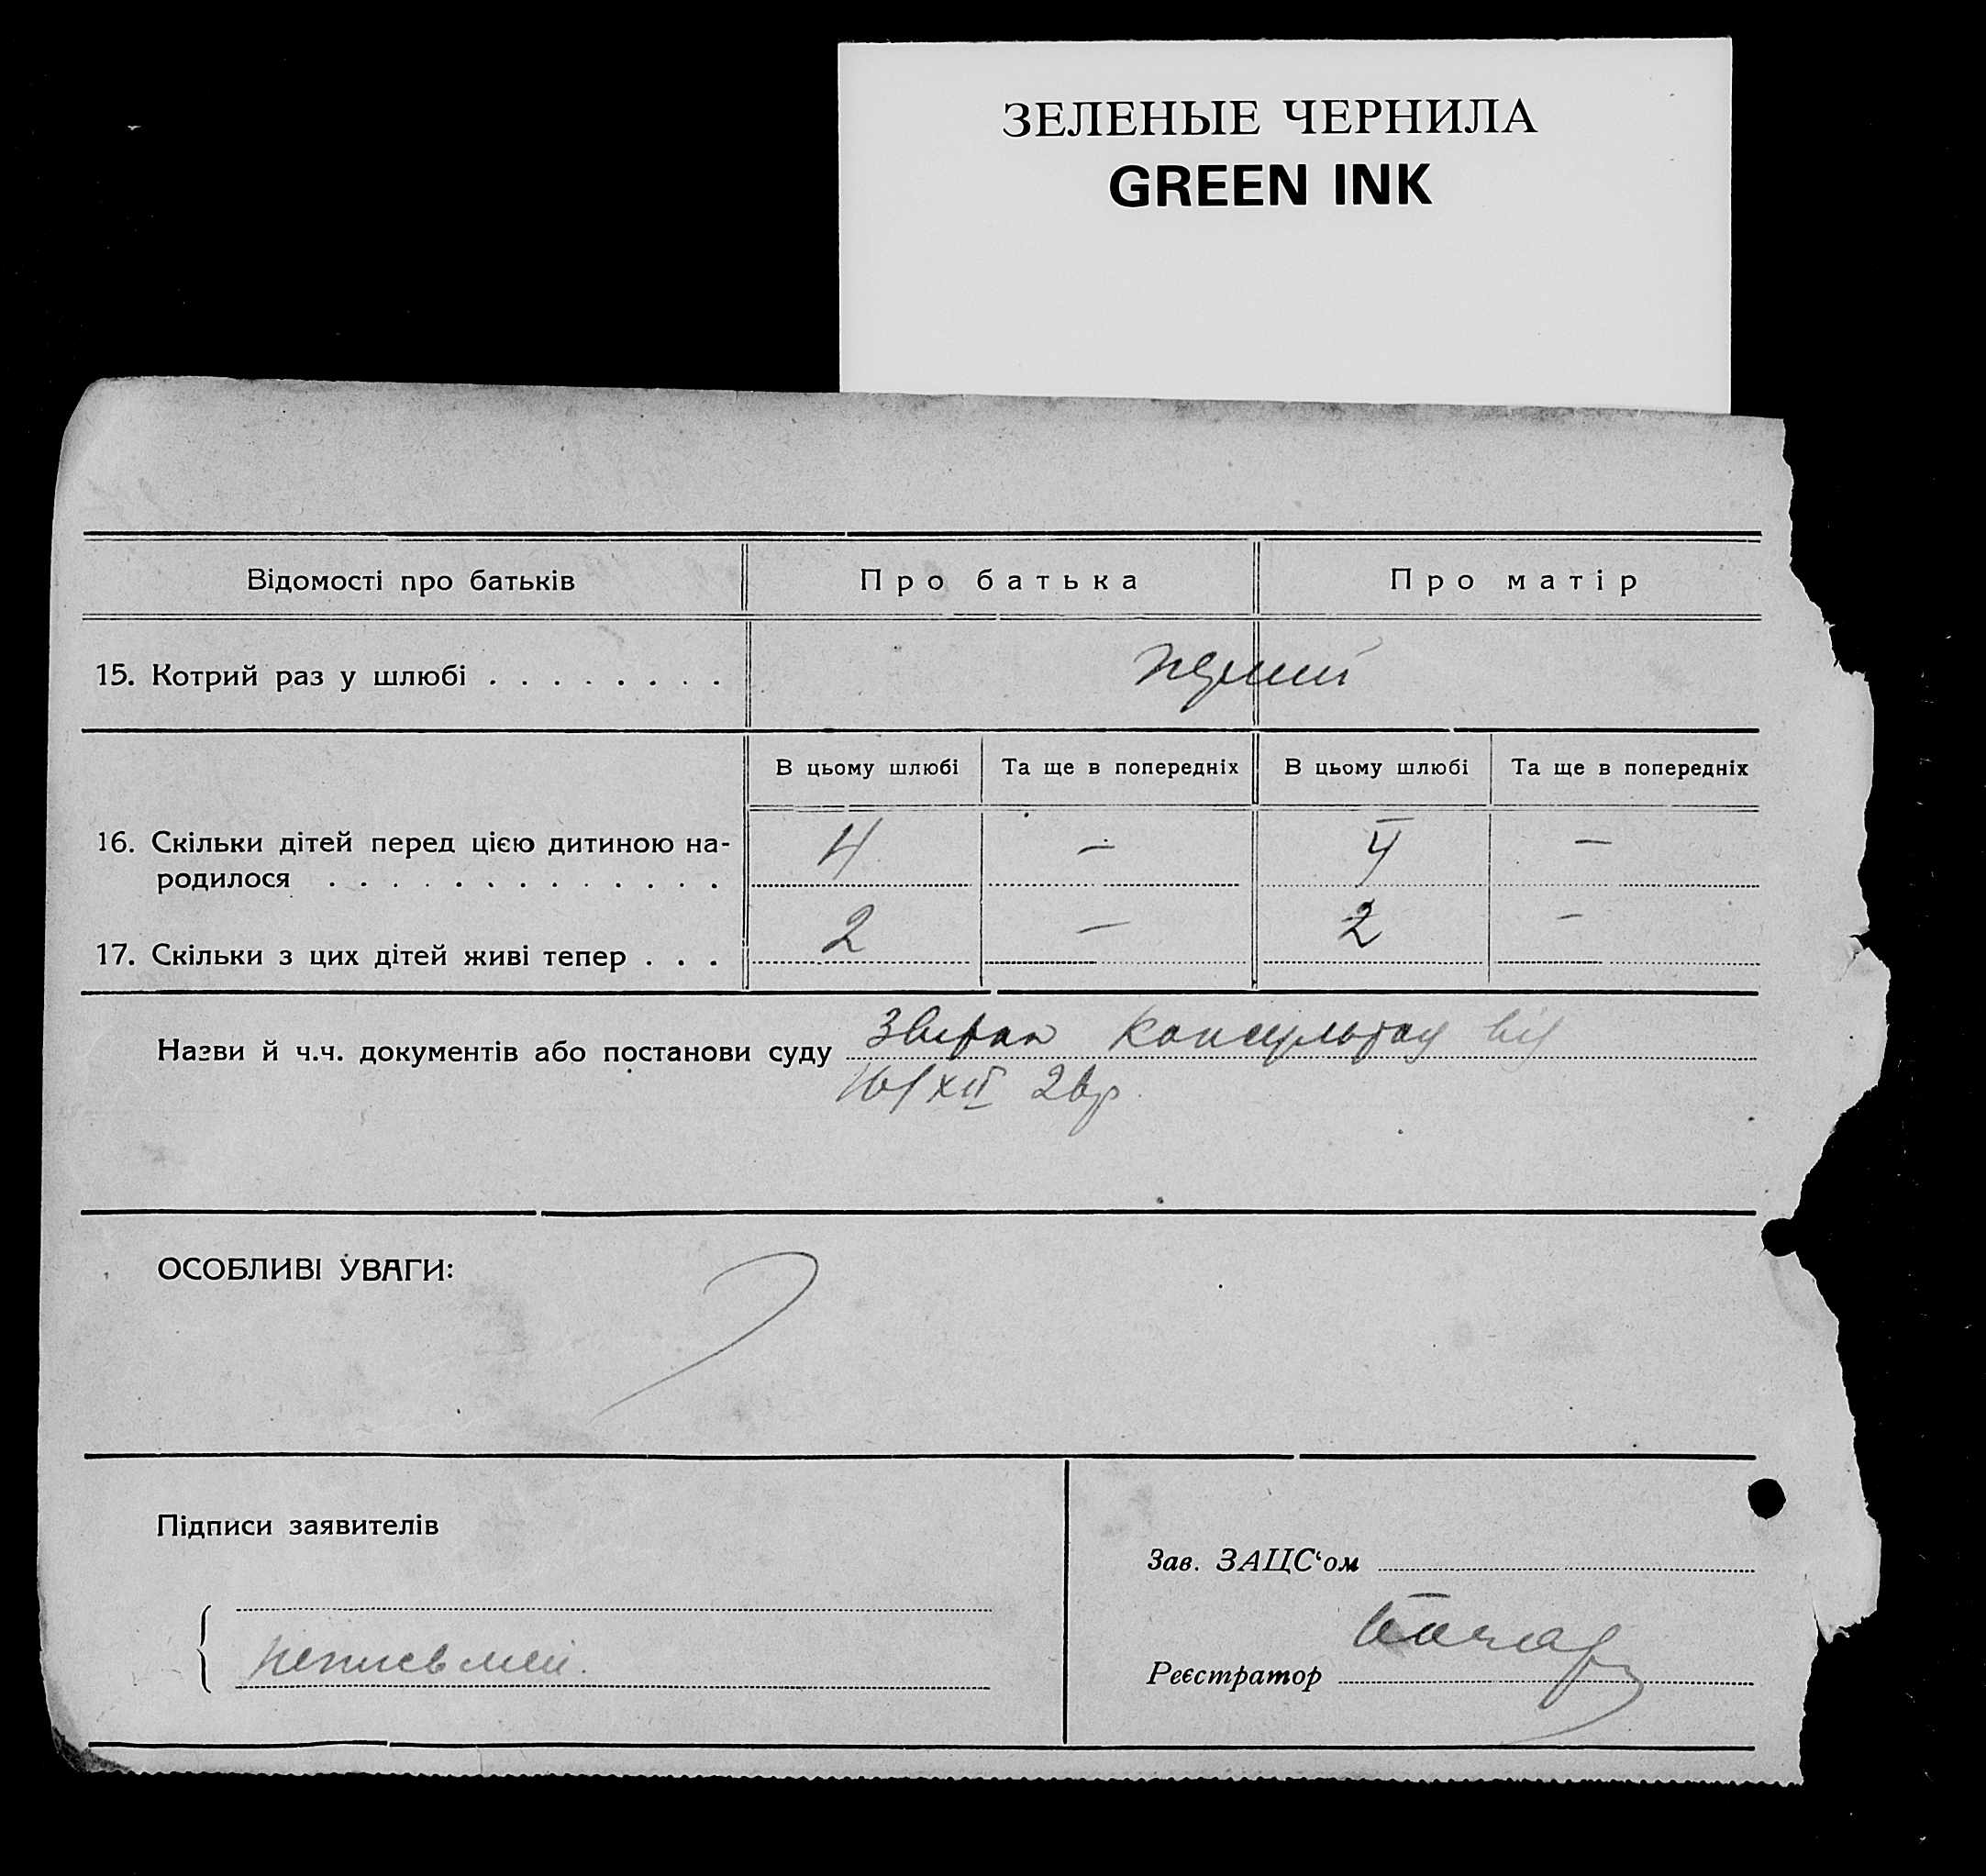 ЗЕЛЕНЫЕ ЧЕРНИЛА
GREEN INK
Відомості про батьків Про батька Про матір
15. Котрий раз у шлюбі . . . . . . . .
В цьому шлюбі Та ще в попередніх В цьому шлюбі Та ще в попередніх
16. Скільки дітей перед цією дитиною на-
родилося . . . . . . . . . . . . . 4 — 4 —
17. Скільки з цих дітей живі тепер . . . 2 — 2 —
Назви й ч.ч. документів або постанови суду Консультац від
XII
ОСОБЛИВІ УВАГИ:
Підписи заявителів
Зав. ЗАЦС‘ом
неписьмен.
Реєстратор